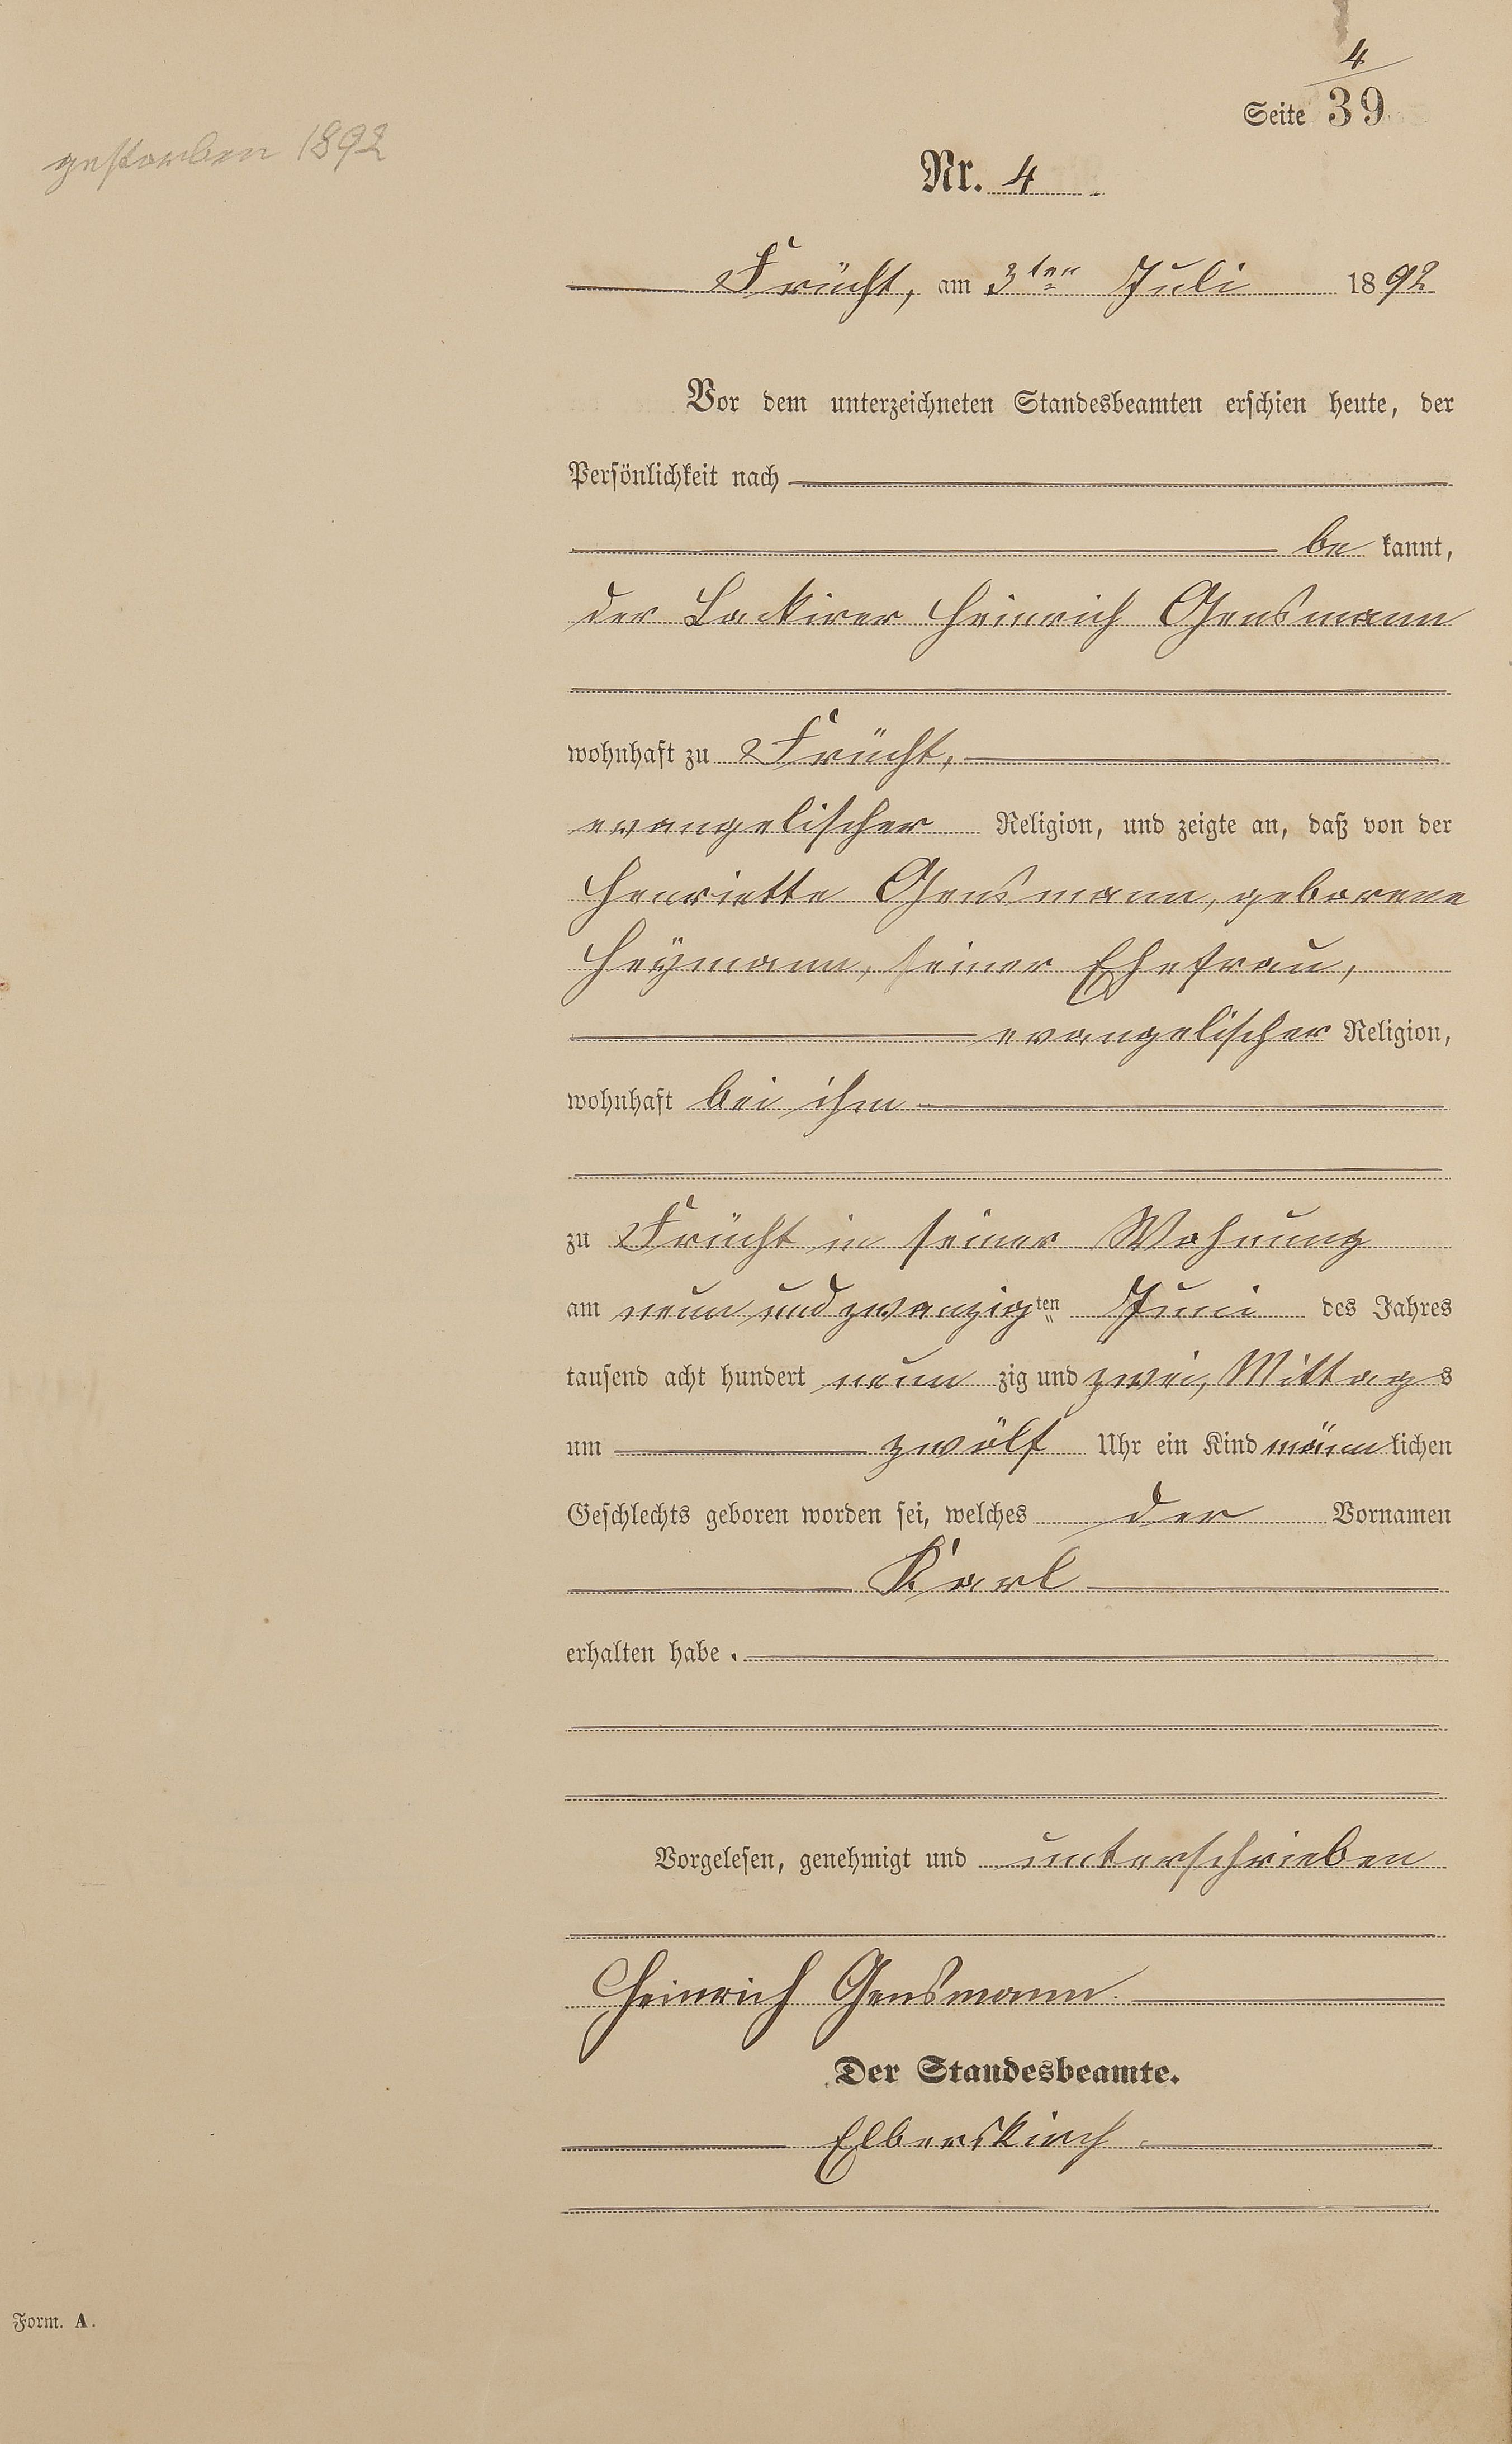 4
Seite 39
gestorben 1892
Nr. 4
Frücht, am 3ten Juli 1892
Vor dem unterzeichneten Standesbeamten erschien heute, der
Persönlichkeit nach
be kannt,
der Lackirer Heinrich Gensmann
wohnhaft zu Frücht,
evangelischer Religion, und zeigte an, daß von der
Henriette Gensmann, geborene
Heymann, seiner Ehefrau,
evangelischer Religion,
wohnhaft bei ihm
zu Frücht in seiner Wohnung
am neun und zwanzigten Juni des Jahres
tausend acht hundert neun zig und zwei, Mittags
um zwölf Uhr ein Kind männlichen
Geschlechts geboren worden sei, welches der Vornamen
Karl
erhalten habe.
Vorgelesen, genehmigt und unterschrieben
Heinrich Gensmann.
Der Standesbeamte.
Elberskirch
Form. A.